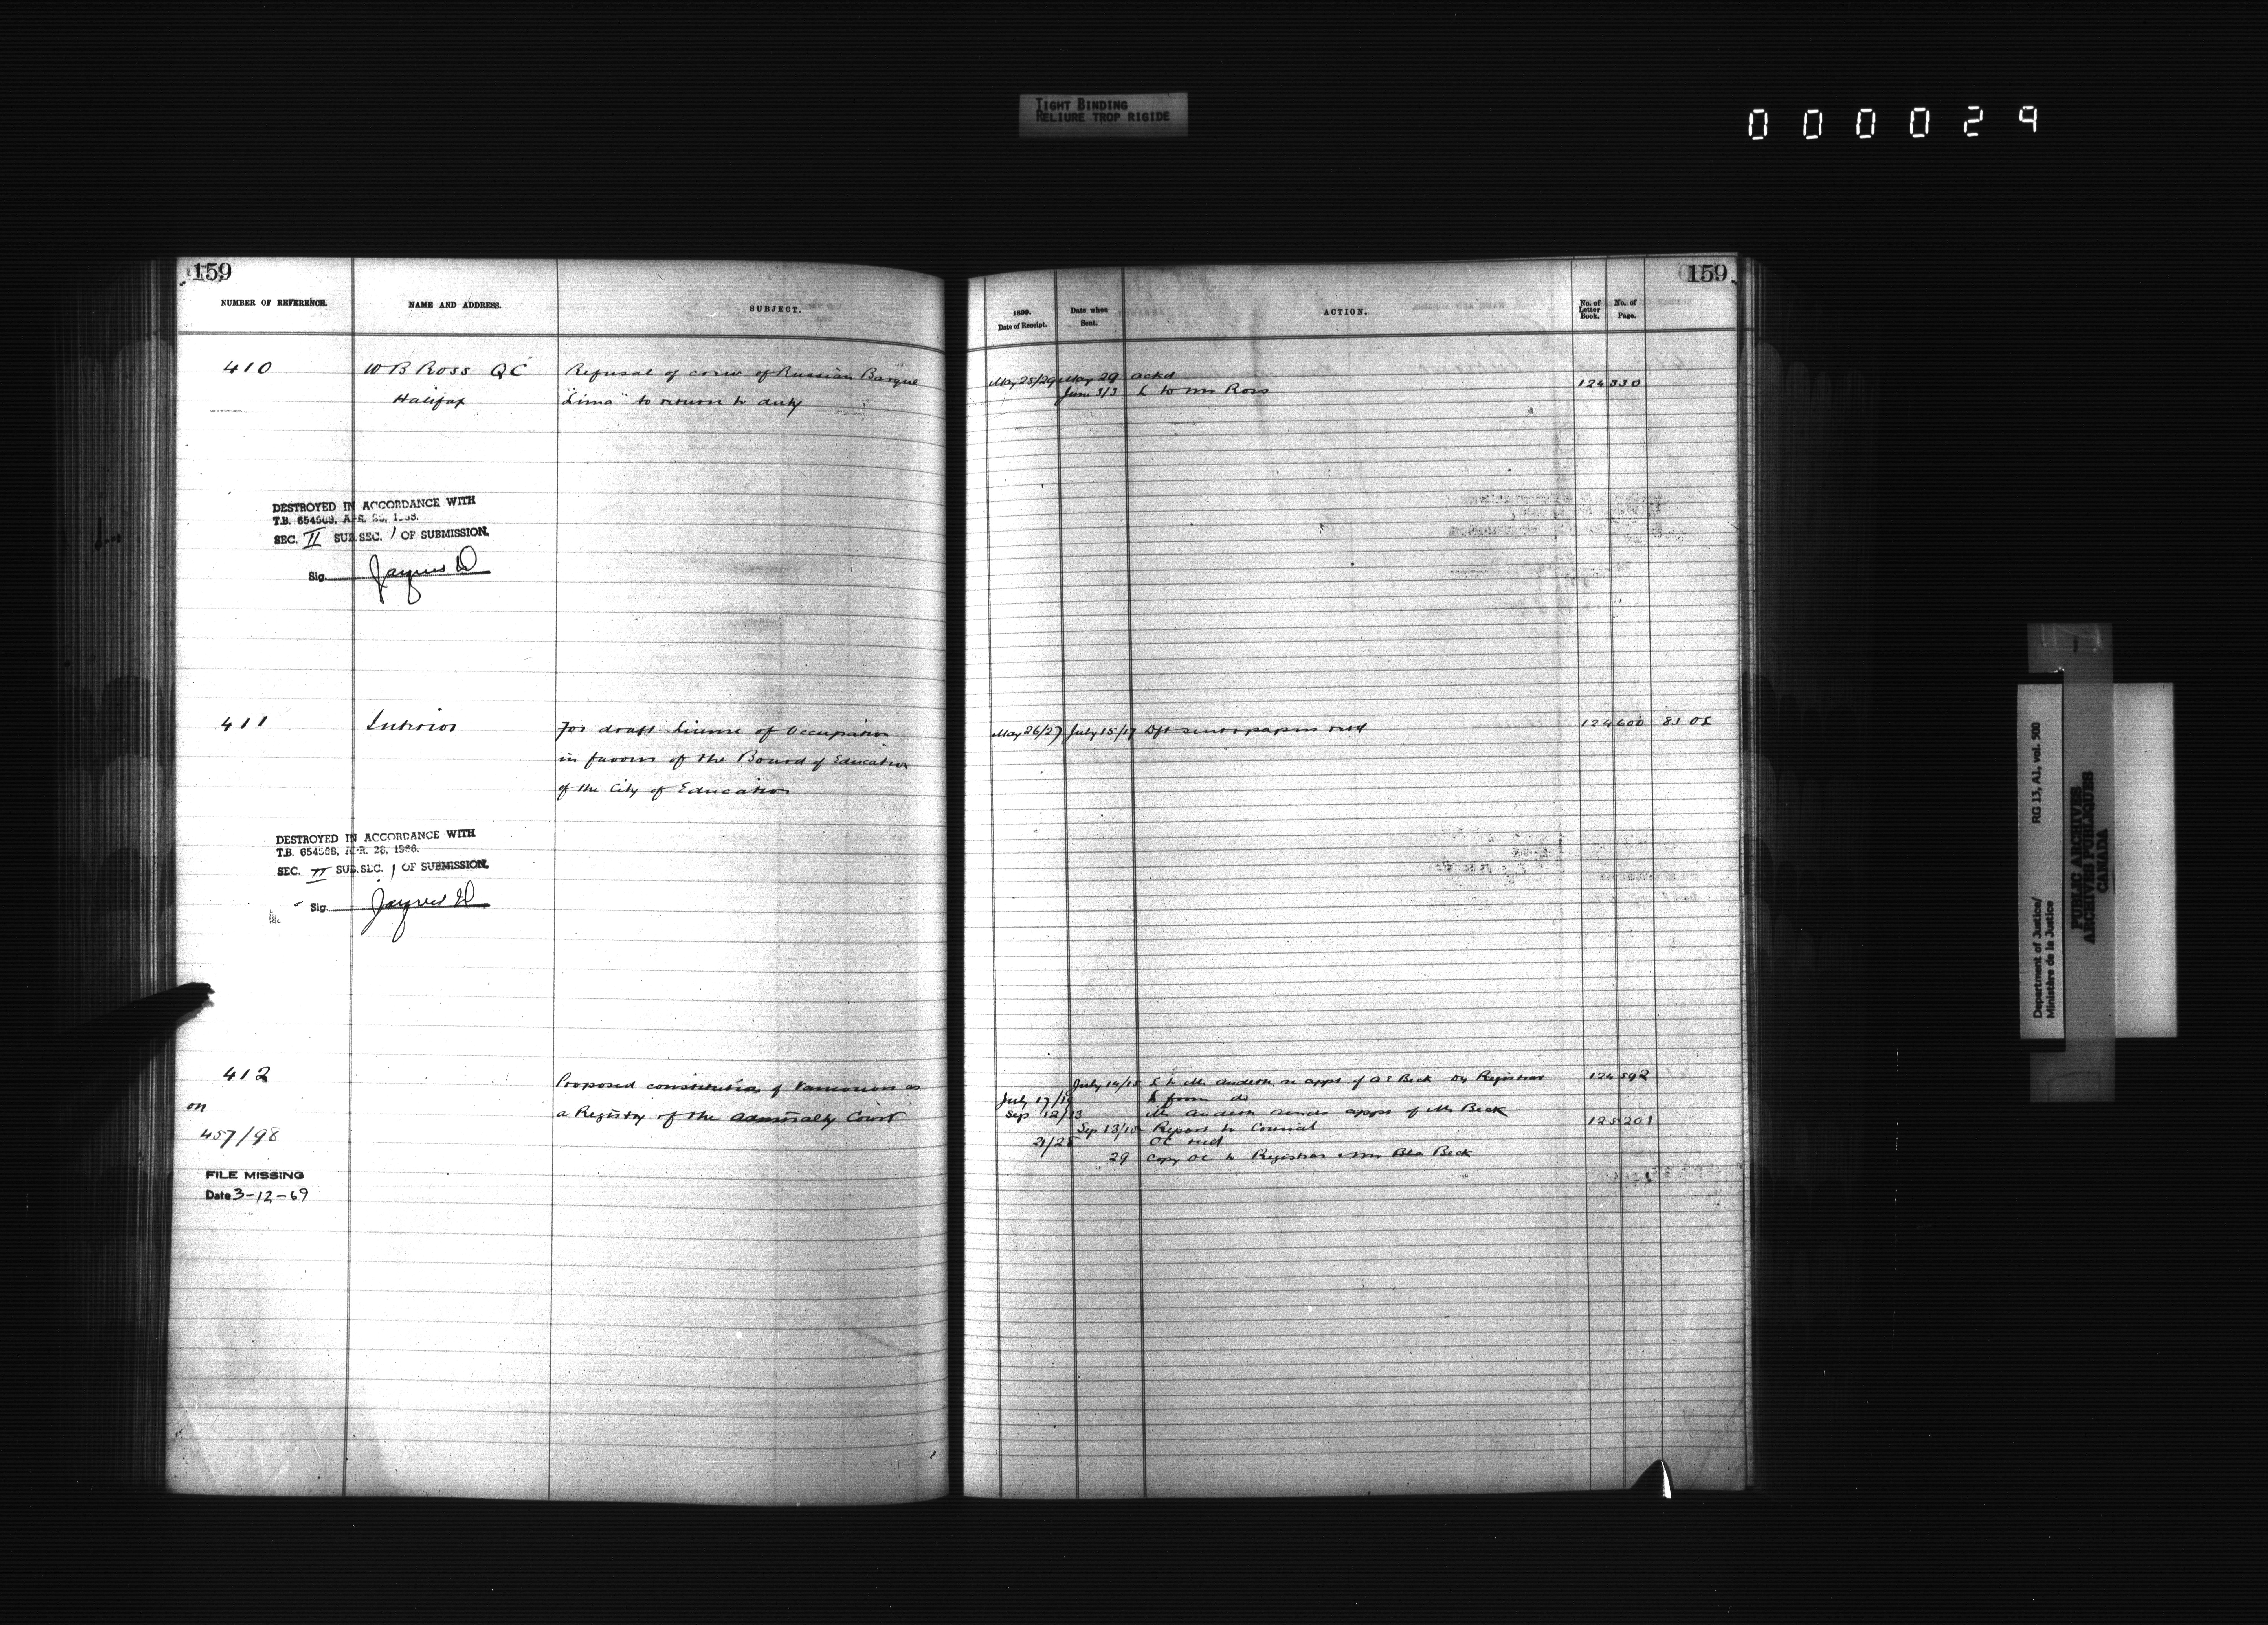 TIGHT BINDING
RELIURE TROP RIGIDE
000029
159
NUMBER OF REFERENCE.
NAME AND ADDRESS.
SUBJECT.
410
W B Ross QC
Refusal of crew of Russian Barque
Halifax
"Lima" to return to duty
DESTROYED IN ACCORDANCE WITH
T.B. 654563, APR. 28,
SEC. II SUB.SEC. 1 OF SUBMISSION.
Sig.
411
Interior
For draft License of Occupation
in favour of the Board of Education
of the City of Education
DESTROYED IN ACCORDANCE WITH
T.B. APR. 28, 1966.
SEC. II SUB.SEC. 1 OF SUBMISSION.
Sig.
412
Proposed constitution of Vancouver as
on
a Registry of the Admiralty Court
457/98
FILE MISSING
Date 3-12-69
159
1899.
Date of Receipt.
Date when
Sent.
ACTION.
No. of
Letter
Book.
No. of
Page.
May 25/29 May 29 ackd
June 3/3 L to Mr Ross 124 330
May 26/27 July 15/17 Dft sent & papers retd 124 600
July 14/15 L to Mr re appt of A E Beck Dy Registrar 124 592
July 17/18 L from do
Sep 12/13 Mr sends appt of Mr Beck
Sep 13/15 Report to Council 125 201
21/25 OC recd
29 Copy OC to Registrar & Mr Beck
Department of Justice/
Ministère de la Justice
RG 13, A1, vol. 500
PUBLIC ARCHIVES
ARCHIVES PUBLIQUES
CANADA